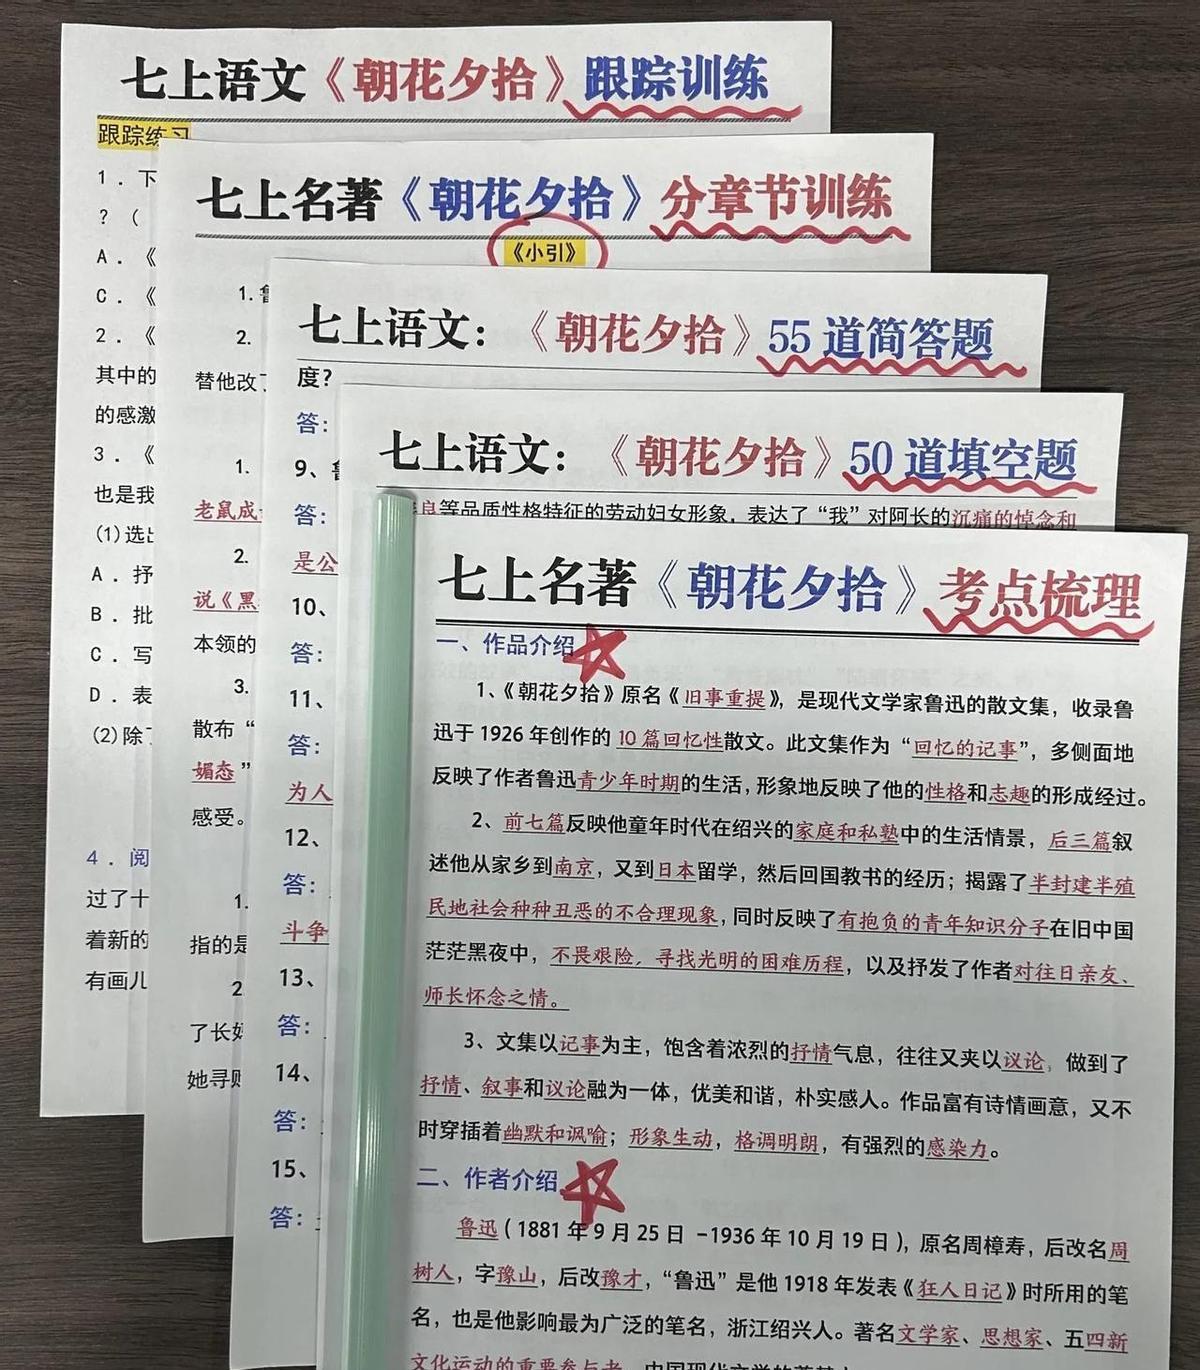 七上语文《朝花夕拾》跟踪训练
跟踪练习
1．下
？（
A．《
C．《
2．《
其中的
的感激
3．《
也是我
(1)选出
A．抒
B．批
C．写
D．表
(2)除了
4．阅
过了十
着新的
有画儿
七上名著《朝花夕拾》分章节训练
《小引》
1.鲁
2.
替他改了
1.
老鼠成
2.
说《黑
本领的
3.
散布“
媚态”
感受。
1.
指的是
2
了长妈
她寻购
七上语文：《朝花夕拾》55道简答题
度？
答：
9、鲁
答：
是公
10、
答：
11、
答：
为人
12、
答：
斗争
13、
答：
14、
答：
15、
答：
七上语文：《朝花夕拾》50道填空题
良等品质性格特征的劳动妇女形象，表达了“我”对阿长的沉痛的悼念和
七上名著《朝花夕拾》考点梳理
一、作品介绍
1、《朝花夕拾》原名《旧事重提》，是现代文学家鲁迅的散文集，收录鲁
迅于1926年创作的10篇回忆性散文。此文集作为“回忆的记事”，多侧面地
反映了作者鲁迅青少年时期的生活，形象地反映了他的性格和志趣的形成经过。
2、前七篇反映他童年时代在绍兴的家庭和私塾中的生活情景，后三篇叙
述他从家乡到南京，又到日本留学，然后回国教书的经历；揭露了半封建半殖
民地社会种种丑恶的不合理现象，同时反映了有抱负的青年知识分子在旧中国
茫茫黑夜中，不畏艰险、寻找光明的困难历程，以及抒发了作者对往日亲友、
师长怀念之情。
3、文集以记事为主，饱含着浓烈的抒情气息，往往又夹以议论，做到了
抒情、叙事和议论融为一体，优美和谐，朴实感人。作品富有诗情画意，又不
时穿插着幽默和讽喻；形象生动，格调明朗，有强烈的感染力。
二、作者介绍
鲁迅（1881年9月25日-1936年10月19日），原名周樟寿，后改名周
树人，字豫山，后改豫才，“鲁迅”是他1918年发表《狂人日记》时所用的笔
名，也是他影响最为广泛的笔名，浙江绍兴人。著名文学家、思想家、五四新
文化运动的重要参与者，中国现代文学的奠基人